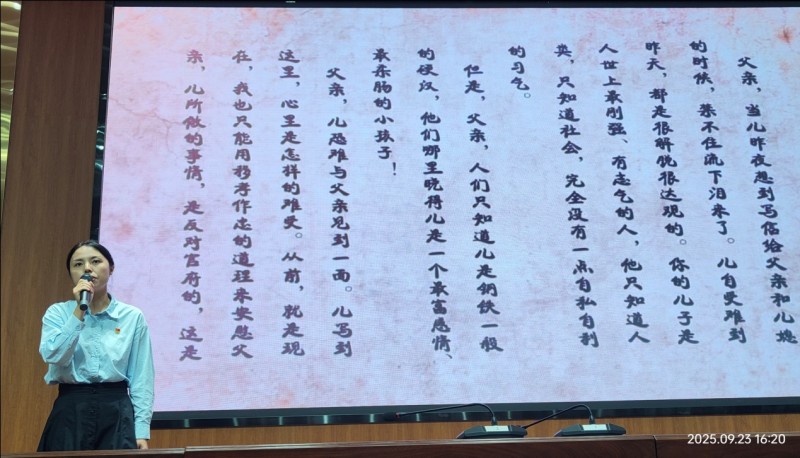 父亲，当儿昨夜想到写信给父亲和儿媳
的时候，禁不住流下泪来了。儿自受难到
昨天，都是很解脱很达观的。你的儿子是
人世上最刚强、有志气的人，他只知道人
类，只知道社会，完全没有一点自私自利
的习气。
但是，父亲，人们只知道儿是钢铁一般
的硬汉，他们哪里晓得儿是一个最富感情、
最柔肠的小孩子！
父亲，儿恐难与父亲见到一面。儿写到
这里，心里是怎样的难受。从前，就是现
在，我也只能用移孝作忠的道理来安慰父
亲，儿所做的事情，是反对官府的，这是
2025.09.23 16:20